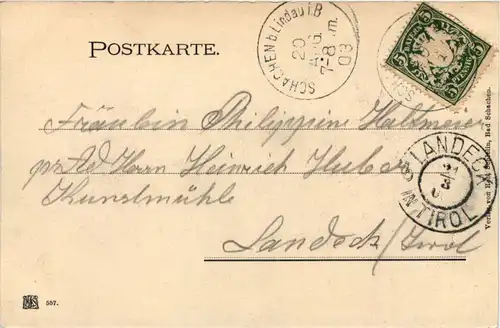 POSTKARTE.
SCHACHEN b. Lindau i.B
20
AUG.
7-8 m.
03
5
Fräulein Philippine Haltmeier
pr. Ad Herrn Heinrich Huber
Kunstmühle
Landeck/Tirol
LANDECK
21
8
IN TIROL
Bad Schachen.
557.